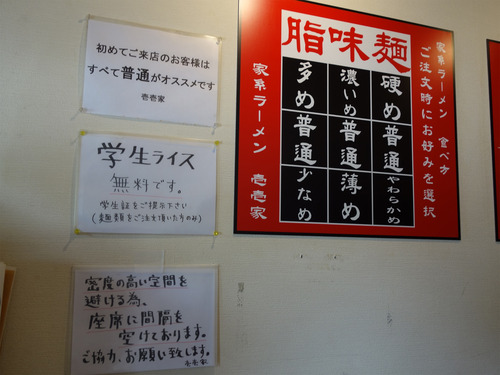 初めてご来店のお客様は
すべて普通がオススメです
壱壱家
学生ライス
無料です。
学生証をご提示下さい
(麺類をご注文頂いた方のみ)
密度の高い空間を
避ける為、
座席に間隔を
空けております。
ご協力、お願い致します。
壱壱家
家系ラーメン 食べ方
ご注文時にお好みを選択
脂味麺
硬め普通やわらかめ
濃いめ普通薄め
多め普通少なめ
家系ラーメン 壱壱家